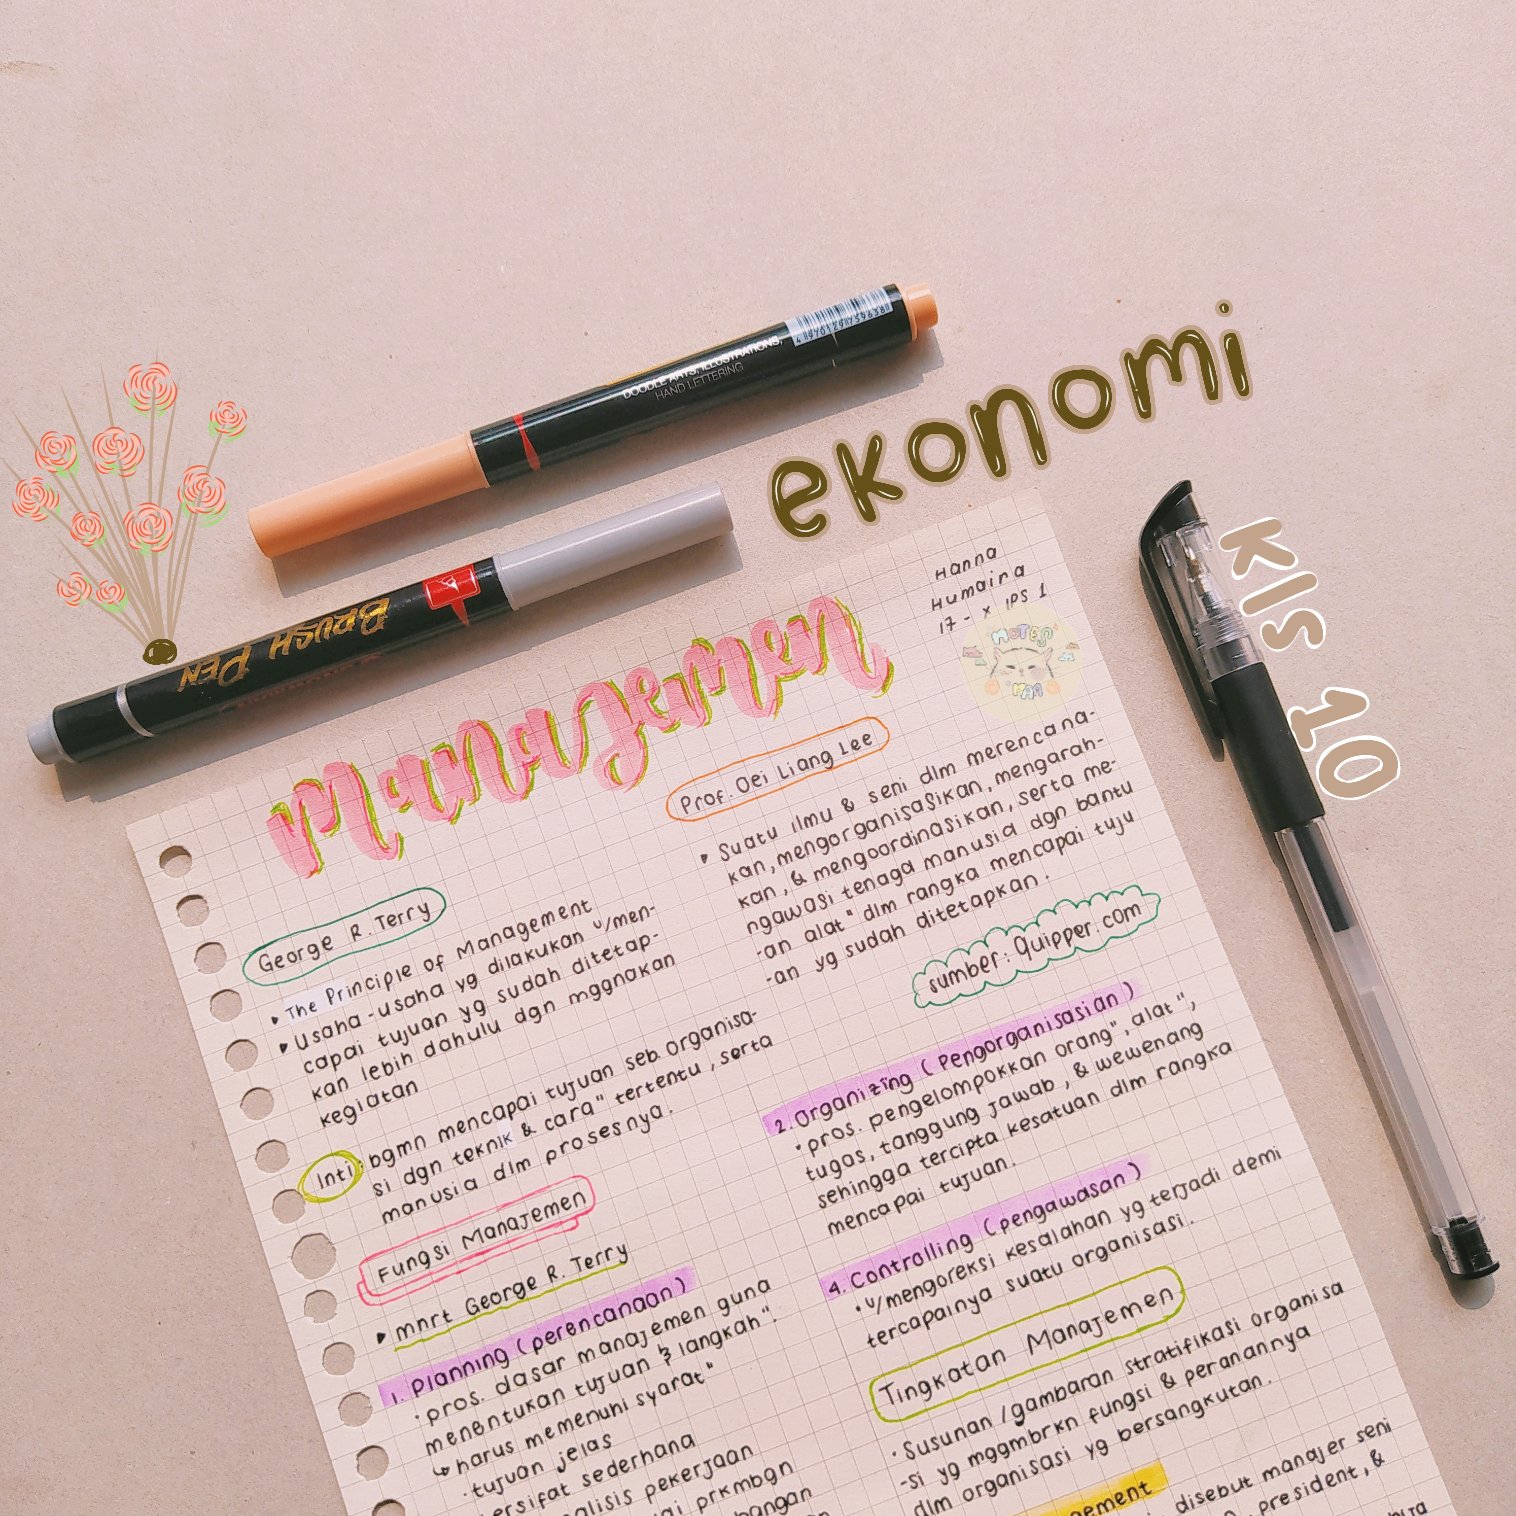 ekonomi
kls 10
DOODLE ARTS, ILLUSTRATIONS,
HAND LETTERING
BRUSH PEN
Hanna
Humaira
17 - X IPS 1
NOTES
Manajemen
George R. Terry
The Principle of Management
Usaha-usaha yg dilakukan u/men-
capai tujuan yg sudah ditetap-
kan lebih dahulu dgn mggnakan
kegiatan
Inti: bgmn mencapai tujuan seb. organisa-
si dgn teknik & cara" tertentu, serta
manusia dlm prosesnya.
Fungsi Manajemen
mnrt George R. Terry
1. Planning (perencanaan)
• pros. dasar manajemen guna
menentukan tujuan & langkah".
↳ harus memenuhi syarat"
• tujuan jelas
ersifat sederhana
nalisis pekerjaan
ai prkmbgn
bangan
Prof. Oei Liang Lee
Suatu ilmu & seni dlm merencana-
kan, mengorganisasikan, mengarah-
kan, & mengoordinasikan, serta me-
ngawasi tenaga manusia dgn bantu
-an alat" dlm rangka mencapai tuju
-an yg sudah ditetapkan.
sumber: Quipper.com
2. Organizing (Pengorganisasian)
• pros. pengelompokkan orang", alat",
tugas, tanggung jawab, & wewenang
sehingga tercipta kesatuan dlm rangka
mencapai tujuan.
4. Controlling (pengawasan)
• u/mengoreksi kesalahan yg terjadi demi
tercapainya suatu organisasi.
Tingkatan Manajemen
• Susunan /gambaran stratifikasi organisa
-si yg mggmbrkn fungsi & peranannya
dlm organisasi yg bersangkutan.
gement
disebut manajer seni
president, &